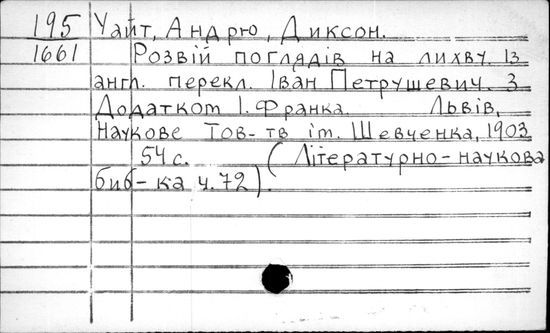 195 Уайт, Андрю, Диксон.
1661 Розвій поглядів на лихву. Із
англ. перекл. Іван Петрушевич. З
Додатком І. Франка. Львів,
Наукове Тов-тв ім. Шевченка, 1903
54 с. (Літературно-наукова
биб-ка ч. 72).